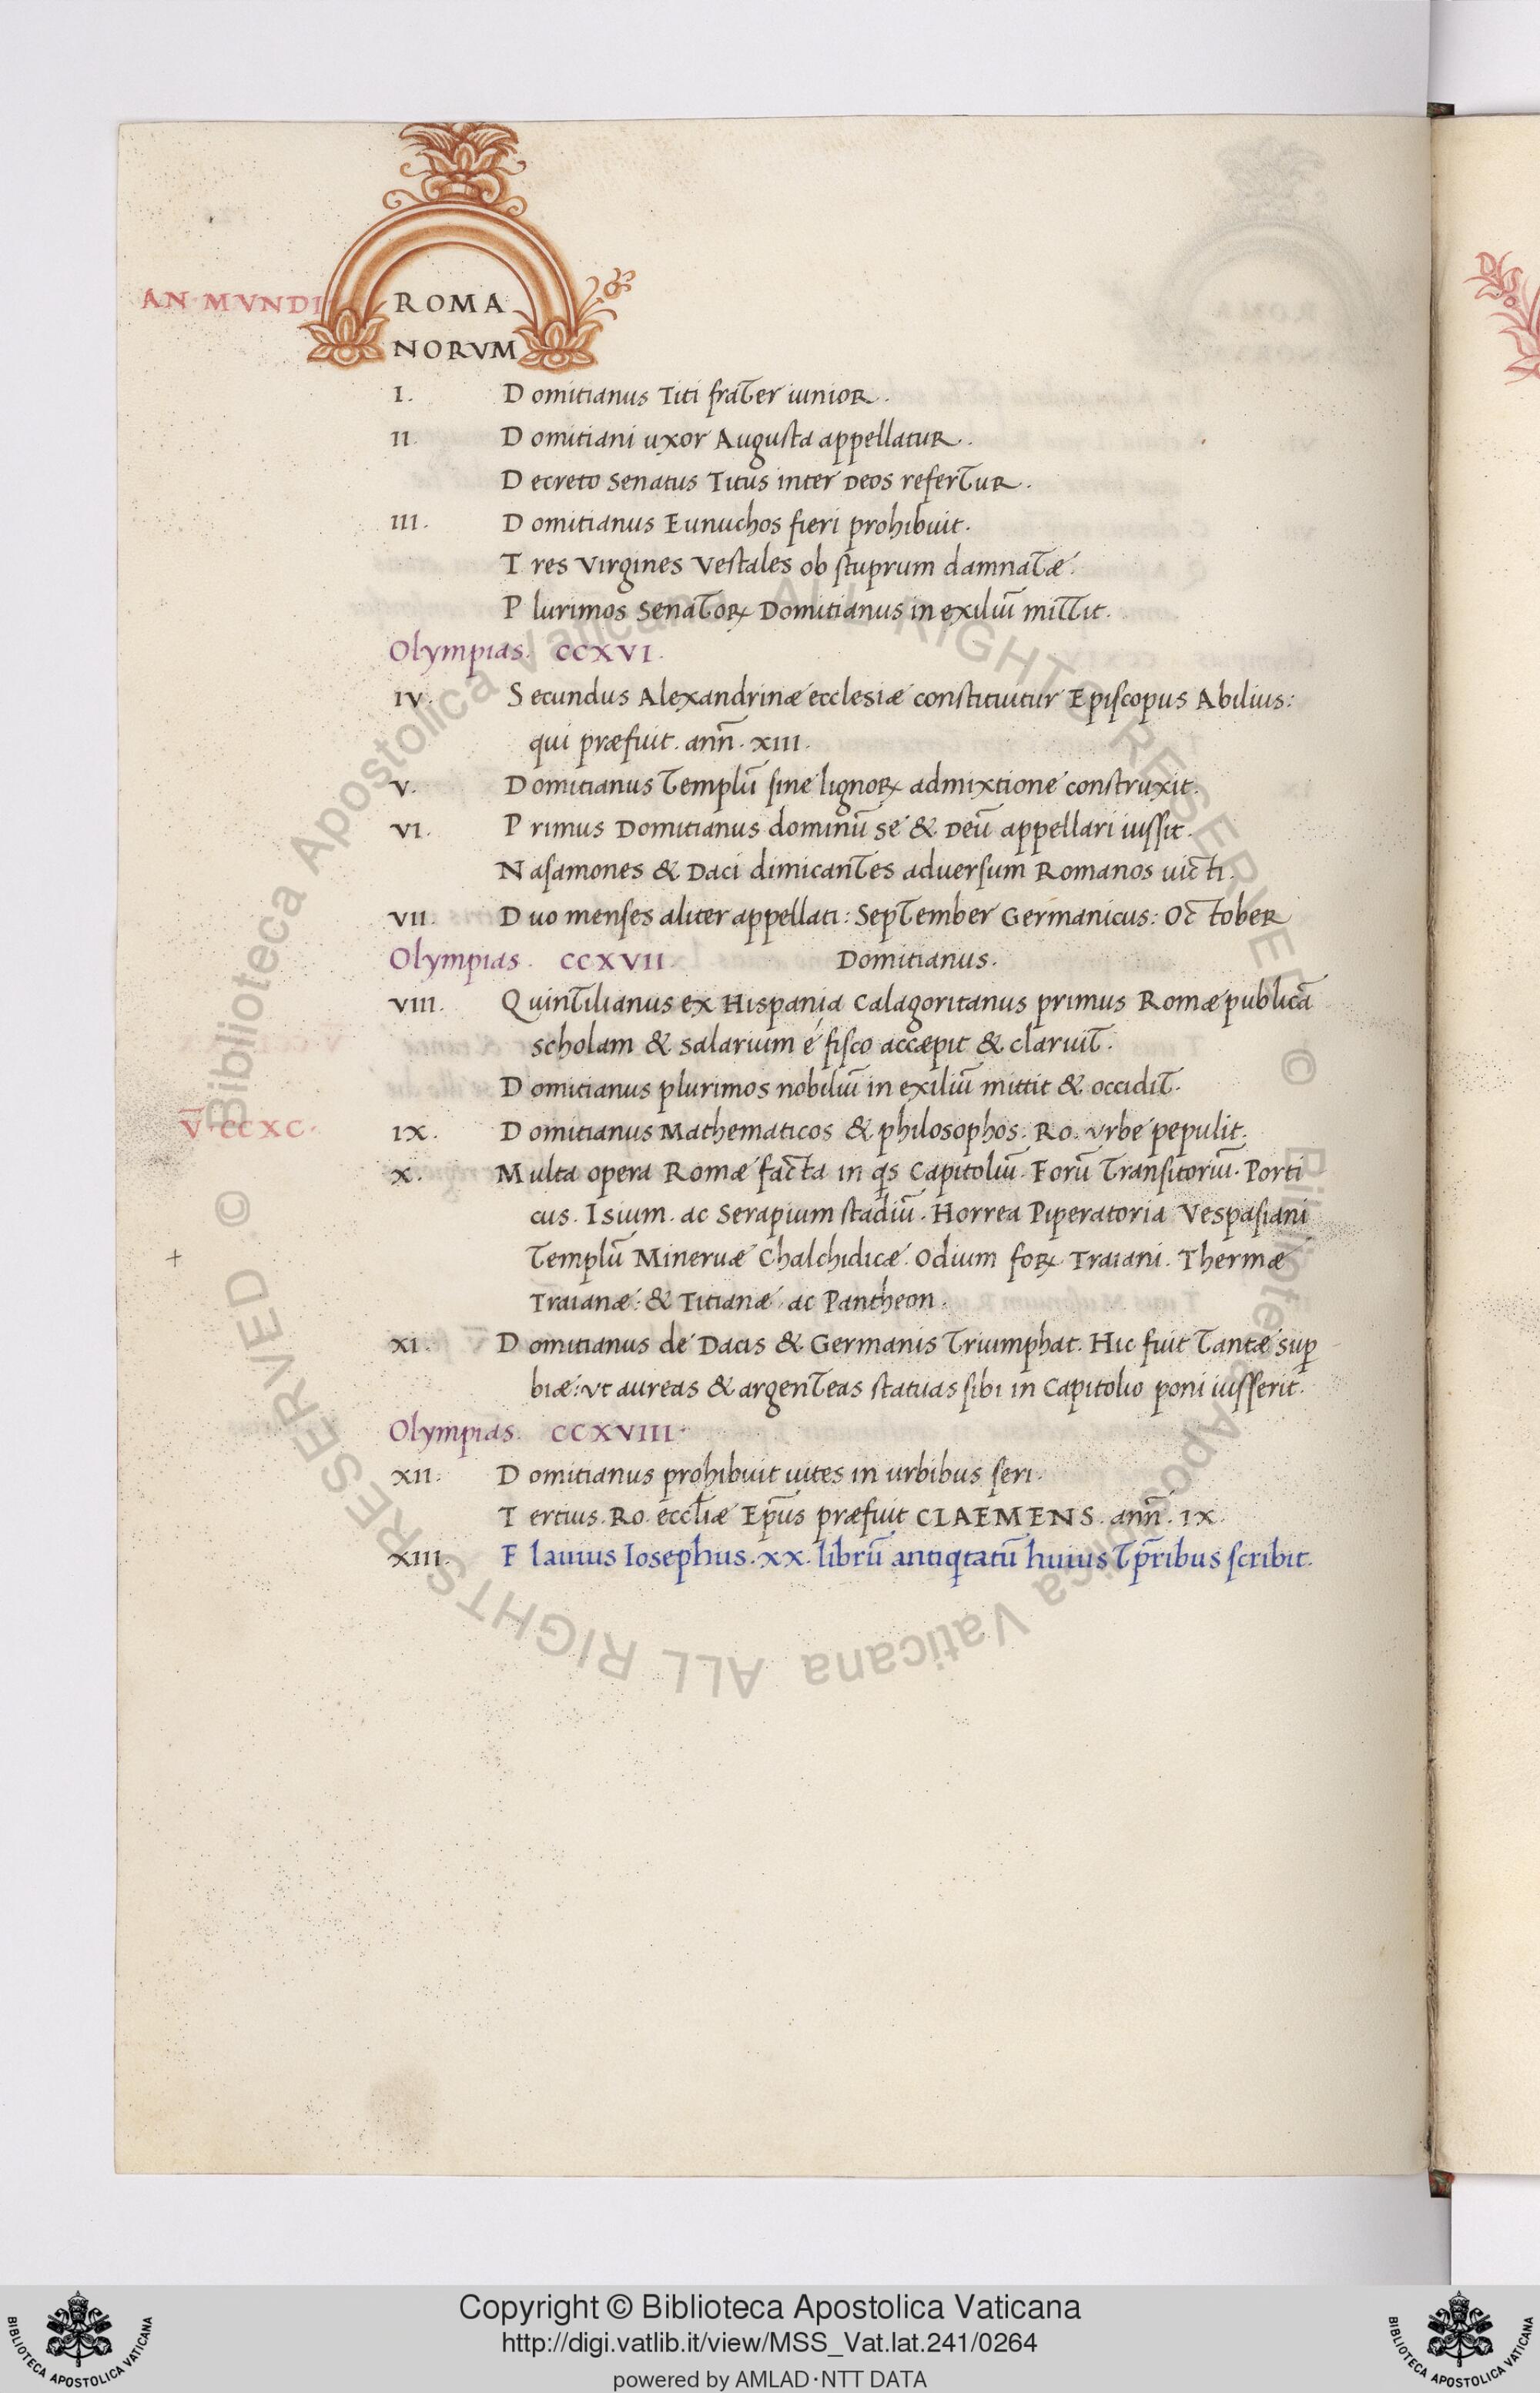 AN MVNDI
ROMA
NORVM
I. Domitianus Titi frater iunior.
II. Domitiani uxor Augusta appellatur.
Decreto Senatus Titus inter Deos refertur.
III. Domitianus Eunuchos fieri prohibuit.
Tres Virgines Vestales ob stuprum damnatæ.
Plurimos Senatoꝝ Domitianus in exiliū mittit.
Olympias. CCXVI.
IV. Secundus Alexandrinæ ecclesiæ constituitur Episcopus Abilius:
qui præfuit. ann̄. XIII.
V. Domitianus Templū sine lignoꝝ admixtione construxit.
VI. Primus Domitianus dominū se & Deū appellari iussit.
Nasamones & Daci dimicantes aduersum Romanos uicti.
VII. Duo menses aliter appellati: September Germanicus: October
Olympias. CCXVII. Domitianus.
VIII. Quintilianus ex Hispania Calagoritanus primus Romæ publicā
scholam & salarium é fisco accæpit & claruit.
Domitianus plurimos nobiliū in exiliū mittit & occidit.
V̄ CCXC.
IX. Domitianus Mathematicos & philosophos. Ro. Vrbe pepulit.
X. Multa opera Romæ facta in qs Capitoliū. Forū Transitoriū. Porti
cus. Isium. ac Serapium stadiū. Horrea Piperatoria Vespasiani
Templū Mineruæ Chalchidicæ. Odium foꝝ Traiani. Thermæ
Traianæ: & Titianæ ac Pantheon.
XI. Domitianus de Dacis & Germanis Triumphat. Hic fuit tantæ suꝑ
biæ: vt aureas & argenteas statuas sibi in Capitolio poni iusserit.
Olympias. CCXVIII.
XII. Domitianus prohibuit uites in urbibus seri.
Tertius. Ro. eccl̄iæ Ep̄us præfuit CLAEMENS. ann̄. IX.
XIII. Flauius Iosephus. XX. librū antiqtatū huius tp̄ribus scribit.
Copyright © Biblioteca Apostolica Vaticana
http://digi.vatlib.it/view/MSS_Vat.lat.241/0264
powered by AMLAD·NTT DATA
BIBLIOTECA APOSTOLICA VATICANA
BIBLIOTECA APOSTOLICA VATICANA
© Biblioteca Apostolica Vaticana ALL RIGHTS RESERVED. © Biblioteca Apostolica Vaticana ALL RIGHTS RESERVED.